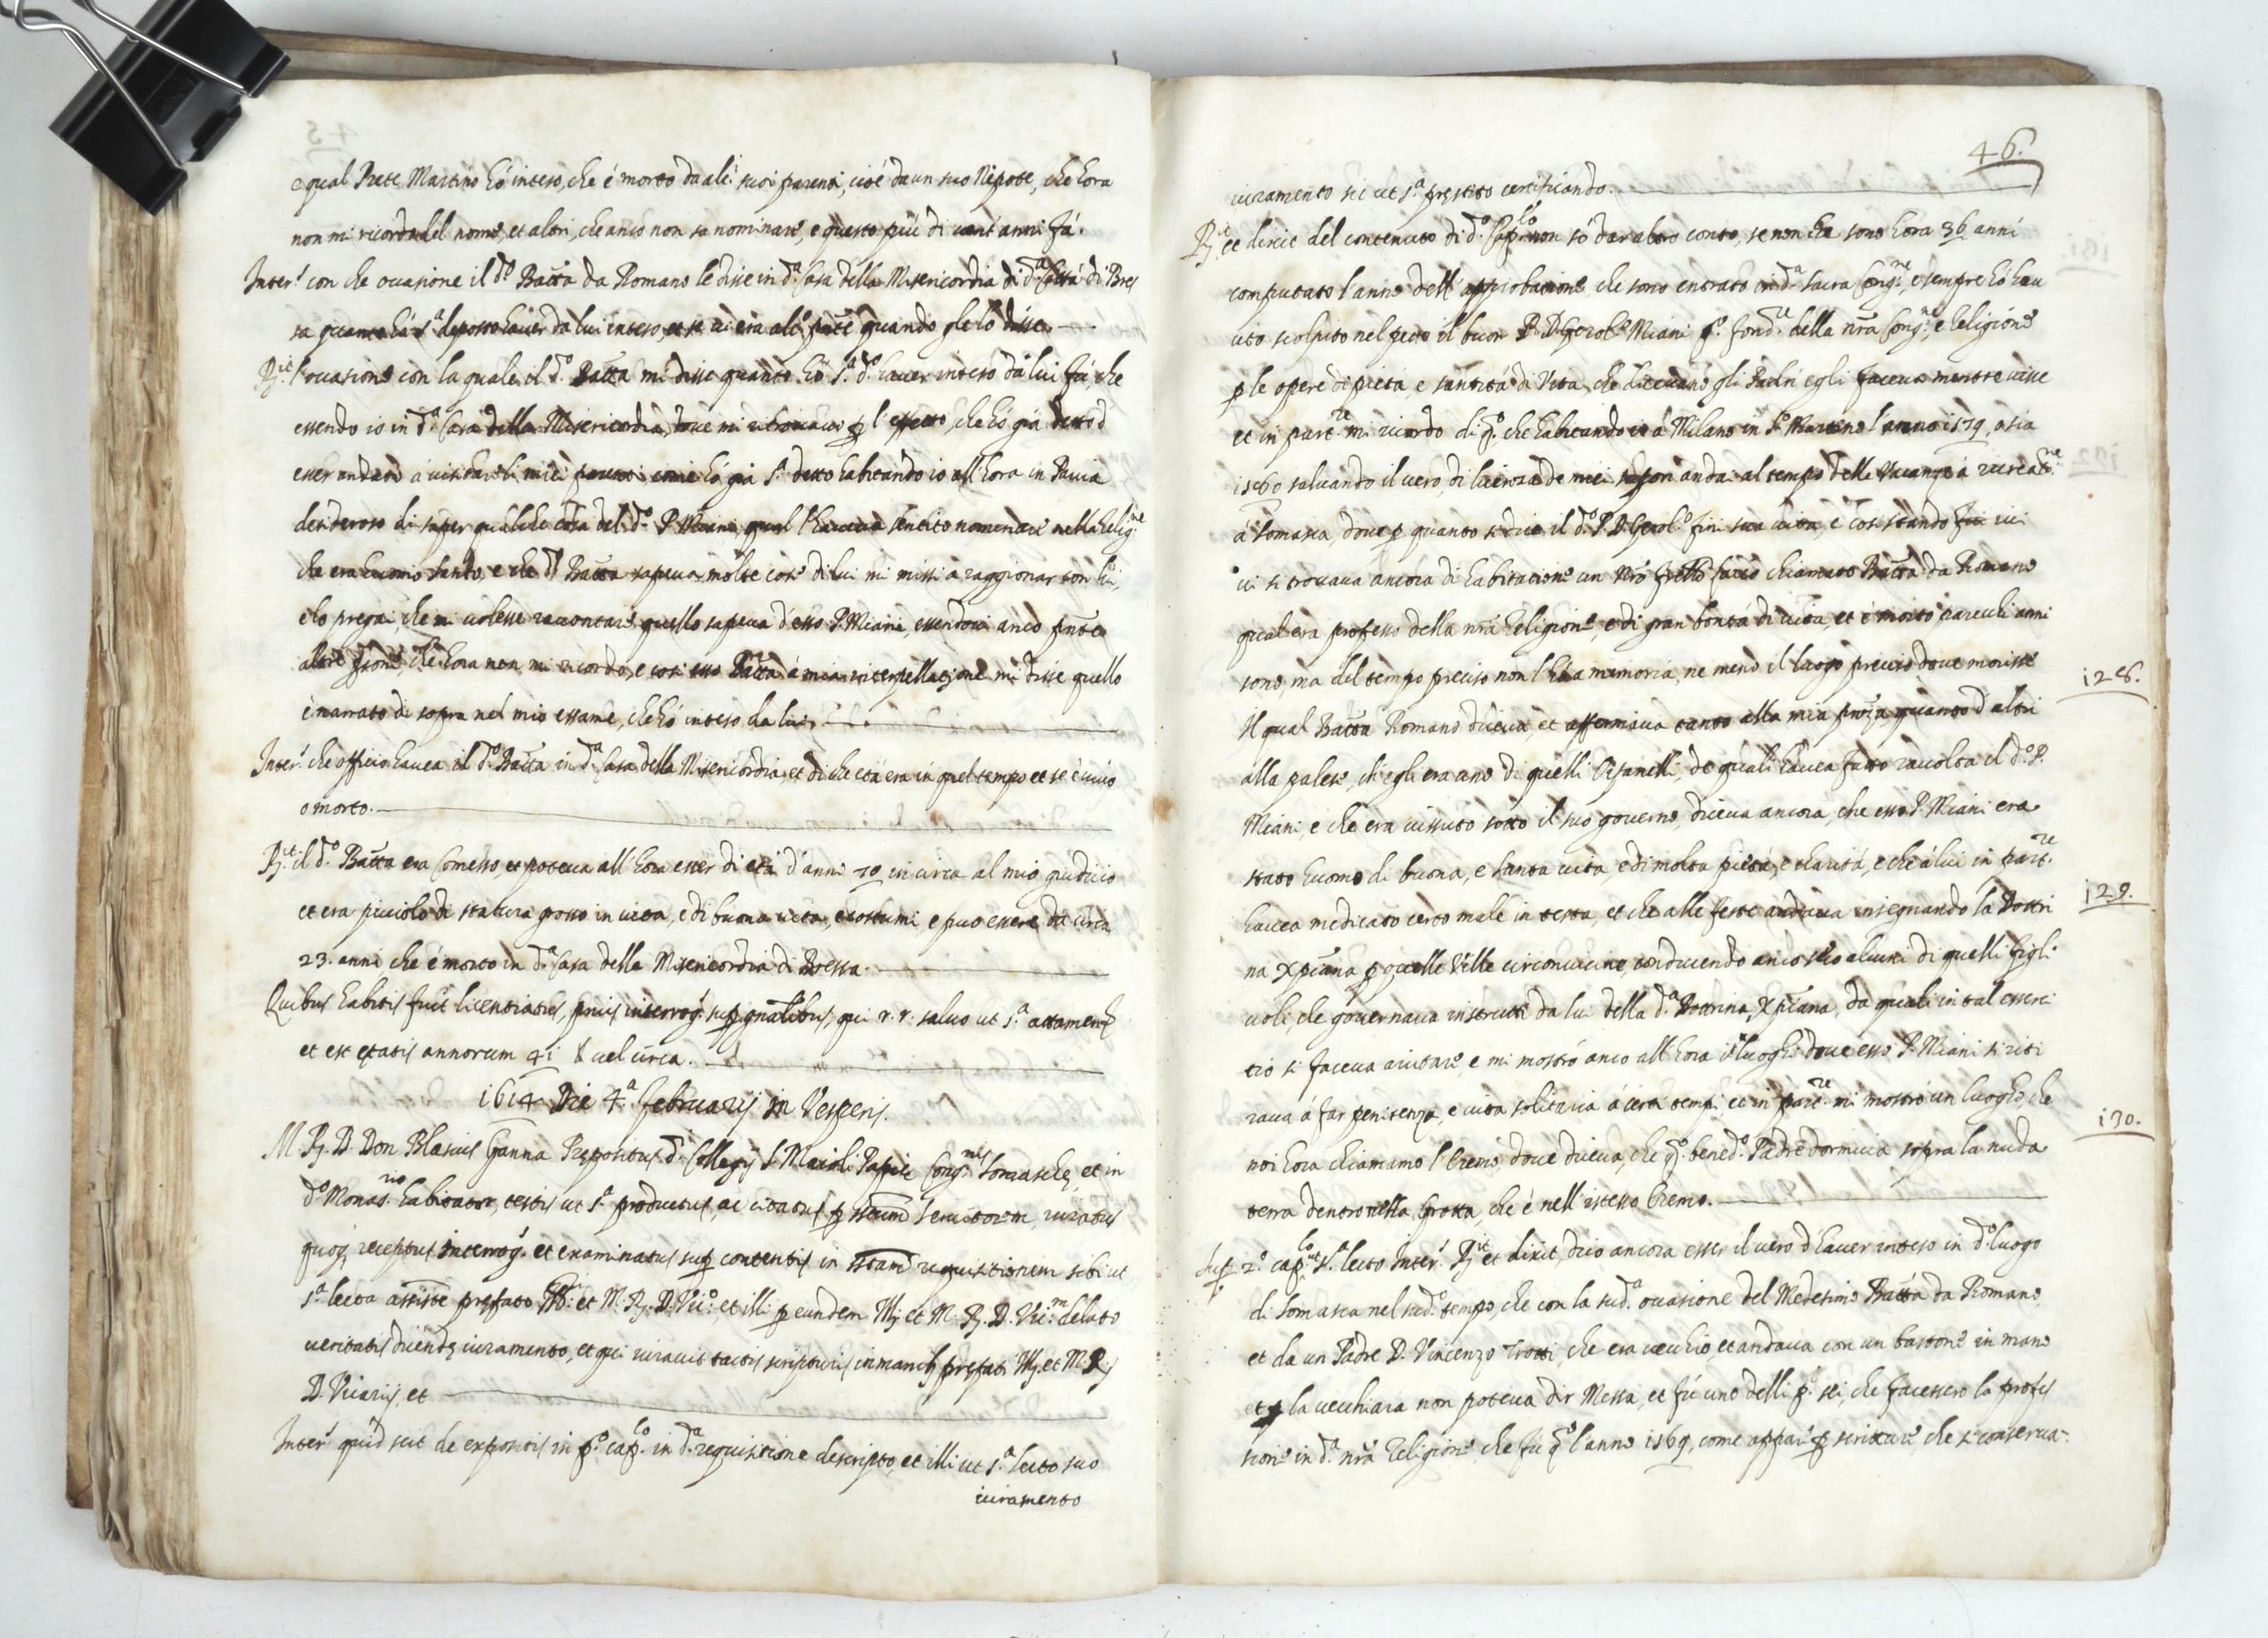 e qual Prete Martino hò inteso, che è morto da alc.i suoi parenti, cioè da un suo Nepote, che hora
non mi ricordo del nome, et altri, che anco non sa nominare, e questo più di vent'anni fà.
Inter.s con che occasione il d.o Batta da Romano le disse in d.a Casa della Misericordia di d.a Città di Bres
sa quanto hà s.a deposto haver da lui inteso, et se vi era alc.o pnte quando gle lo disse.
R.it l'occasione con la quale il d.o Batta mi disse quanto hò s.a d.o haver inteso da lui fù, che
essendo io in d.a Casa della Misericordia, dove mi ritrovavo p l'effetto, che hò già detto d
esser andato à visitare li miei parenti come hò già s.a detto habitando io all'hora in Pavia
desideroso di saper qualche cosa del d.o P. Miani, qual l'haveva sentito nominare nella Relig.ne
che era huomo santo, e che d.o Batta sapeva molte cose di lui mi missi à raggionar con lui,
e lo pregai, che mi volesse raccontare quello sapeva d'esso P. Miani, essendovi anco pnte
altre psone, che hora non mi ricordo, e così esso Batta à mia interpellazione mi disse quello
è narrato di sopra nel mio essame, che hò inteso da lui.
Inter.s che officio havea il d.o Batta in d.a Casa della Misericordia, et di che età era in quel tempo et se è vivo
o morto.
R.it il d.o Batta era Comesso, et poteva all'hora esser di età d'anni 70 in circa al mio giudicio
et era picciolo di statura grosso in vista, e di buona vita, e costumi, e può essere da circa
23. anni che è morto in d.a Casa della Misericordia di Bressa.
Quibus habitis fuit licentiatus, prius interrog.s sup gnalibus, qui r. r. salvo ut s.a attamen
et est ętatis annorum 41 vel circa.
1614 Die 4.a februarij in Vesperis.
M. R. D. Don Blasius Ganna Prępositus d.i Collegij S. Maioli Papię Cong.nis Somaschę, et in
d.o Monas.rio habitator, testis ut s.a productus, ac citatus p Servitorem, iuratus
quoq receptus interrog.s et examinatus sup contentis in requisitionem sibi ut
s.a lecta assiste pręfato Ill.i et M. R. D. Vic.o, et illi p eundem Ill. et M. R. D. Vic.m delato
veritatis dicendę iuramento, et qui iuravit tactis scripturis in manib pręfati Ill. et M. R.
D. Vicarij, et
Inter.s quid scit de expositis in p.o cap.lo in d.a requisitione descripto, et illi ut s.a lecto suo
iuramento
46.
iuramento sic ut s.a pręstito certificando.
R.it et dicit del contenuto di d.o Cap.lo non sò dar altro conto, se non che sono hora 36 anni
computato l'anno dell'approbatione, che sono entrato in d.a Sacra Cong.ne, e sempre hò hau
uto scolpito nel petto il buon P. D. Gerol.o Miani p.o fond.re della nra Cong.ne, e Religione
p le opere di pietà, e santità di Vita, che dicevano gli Padri egli faceva mentre visse
et in part.re mi ricordo di q.o che habitando io à Milano in S.to Martino l'anno 1579, o sia
1560 salvando il vero, di licenza de miei supori andai al tempo delle Vacanze à recreat.ne
à Somasca, dove p quanto si dice il d.o P. D. Gerol.o finì sua vita, e così stando ivi
vi si trovava ancora di habitatione un Nro frello laico chiamato Batta da Romano
qual era professo della nra Religione, e di gran bontà di vita, et è morto parecchi anni
sono, ma del tempo preciso non l'hò a memoria, ne meno il luogo preciso dove morisse
128.
Il qual Batta Romano diceva, et affermava tanto alla mia pnza, quanto d'altri
alla palese, ch'egli era uno di quelli Orfanelli, de quali havea fatto raccolta il d.o P.
Miani, e che era vissuto sotto il suo governo, diceva ancora, che esso P. Miani era
stato huomo di buona, e santa vita, e di molta pietà, e charità, e che à lui in part.re
129.
havea medicato certo male in testa, et che alle feste andava insegnando la Dottri
na Xpiana p quelle Ville circonvicine, conducendo anco seco alcuni di quelli figli
uoli che governava instrutti da lui della d.a Dottrina Xpiana, da quali in tal esserci
tio si faceva aiutare, e mi mostrò anco all'hora i luoghi dove esso P. Miani si riti
rava à far penitenza, e vita solitaria à certi tempi, et in part.re mi mostrò un luogho, che
130.
noi hora chiamamo l'Eremo, dove diceva, che q.o bened.o Padre dormiva sopra la nuda
terra dentro nella Grotta, che è nell'istesso Eremo.
Sup 2.o cap.lo ut s.a lecto Inter.s R.it et dixit, dico ancora esser il vero d'haver inteso in d.o luogo
di Somasca nel sud.o tempo, che con la sud.a occasione del Medesimo Batta da Romano,
et da un Padre D. Vincenzo Trotti, che era vecchio, et andava con un bastone in mano
et p la vecchiaia non poteva dir Messa, et fù uno delli p.i sei, che facessero la profes
sione in d.a nra Religione, che fù q.o l'anno 1569, come appare p scritture, che si conserva-